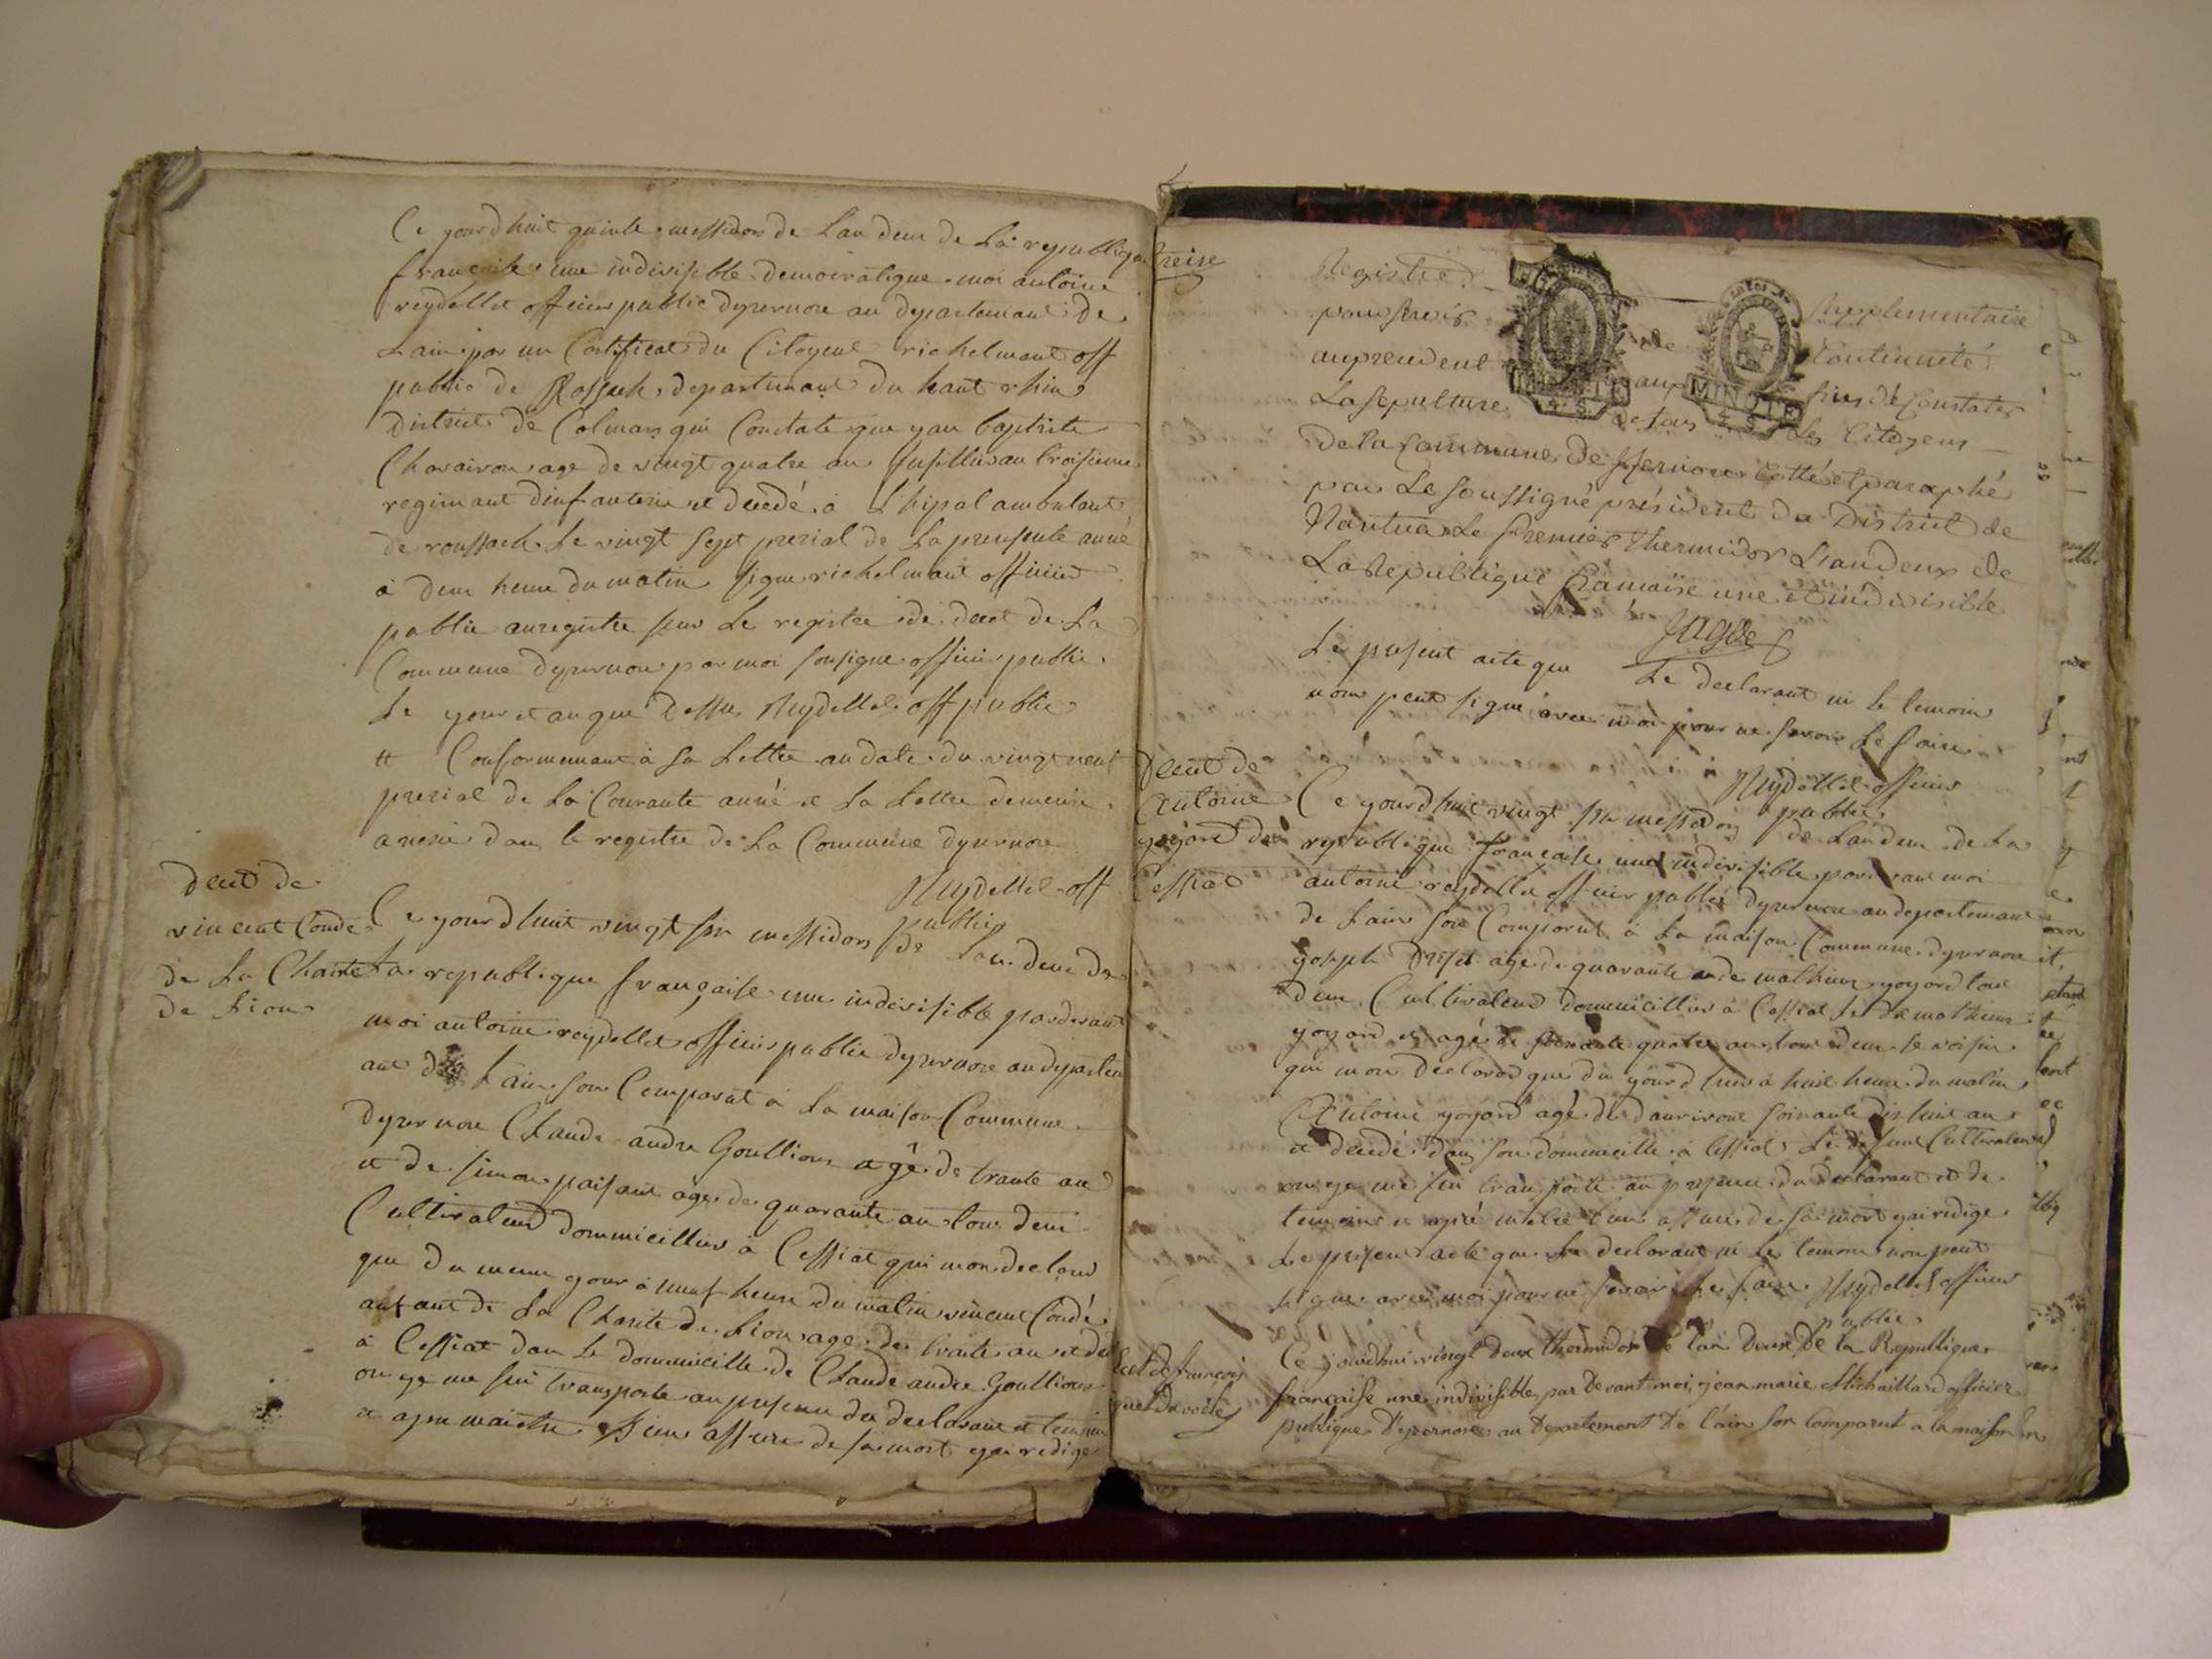 Ce yourd huit quinle messidors de Lan deux de La republique
francaise une indivisible democratique moi antoine
reydellet officier public dyzernore au departemant de
Lain par un Certificat du Citoyent richelmant off
public de Roffach departemant du haut rhin
district de Colmars qui Constate que yan baptiste
age de vingt quatre an fusillier au troisieme
regimant dinfanterie et decedé a L'hipal ambulant
de rouffach le vingt sept prerial de La presente année
a deux heure du matin signe richelmant officier
public anregistre sur Le registre de decet de La
Commune dyzernore par moi sousigne officier public
Le your et an que dessus Reydellet off public
# Conformemant à Sa Lettre an date du vingt neuf
prerial de La Courante année et La Lettre demeure
anexé dans le registre de La Commune dyzernore
Reydellet off
public
decet de
vincent Condé
de La Charité
de Lion
Ce yourd huit vingt six messidors de Lan deux de
La republique française une indivisible pardevant
moi antoine reydellet officier public dyzernore au departem
ant de Lain son Comparut a La maison Commune
dyzernore Claude andre Goullion agé de trante an
et de simon paisant age de quarante an tous deux
Cultivateurs dommicillier a Cessiat qui mon declaré
que du meme your a neuf heure du matin vincent Condé
anfant de La Charité de Lion age de trante an et ded
à Cessiat dan Le dommicille de Claude andre Goullion
ou ye me sui transporte an presence du declarant et temoin
et apres maitre assure de sa mort yai redige
treize
Registre supplementaire
pour servir de Continuité
au precedent aux fins de Constater
La sepulture de tous les Citoyens
de la Commune de Jzernore Cotté et paraphé
par Le soussigné président du District de
Nantua Le premier thermidor L'an deux de
La Republique francaise une et indivisible
Jagot
Le present acte que Le declarant ni le temoin
nom peut signé avec moi pour ne savoir Le faire
Reydellet officier
public
decet de
Antoine
goyord de
Cessiat
Ce yourd huit vingt six messidors de Lan deux de La
republique française une indivisible pardevant moi
antoine reydellet officier public dyzernore au departemant
de Lain son Comparut a La maison Commune dyzernore
yoseph age de quarante an de mathieu goyord tous
deux Cultivateurs dommicillier a Cessiat Le de mathieu
goyord et agé de quatre an tous deux se voisin
qui mon declaré que du yourd huit a huit heure du matin
Antoine goyord agé de danviron soixante dis huit an
et decedé dans son dommicille a Cessiat Le defunt Cultivateur
ou ye me sui transporte an presence du declarant et de
temoin et apré metre assure de sa mort yai redige
Le present acte que Le declarant ni Le temoin non peut
signer avec moi pour ne savoir Le faire Reydellet officier
public
decet de francois
Ce jourdhui vingt deux thermidor de l'an deux de la Republique
française une indivisible par devant moi jean marie Michaillard officier
publique dyzernore au Departement de l'ain son Comparut a la maison